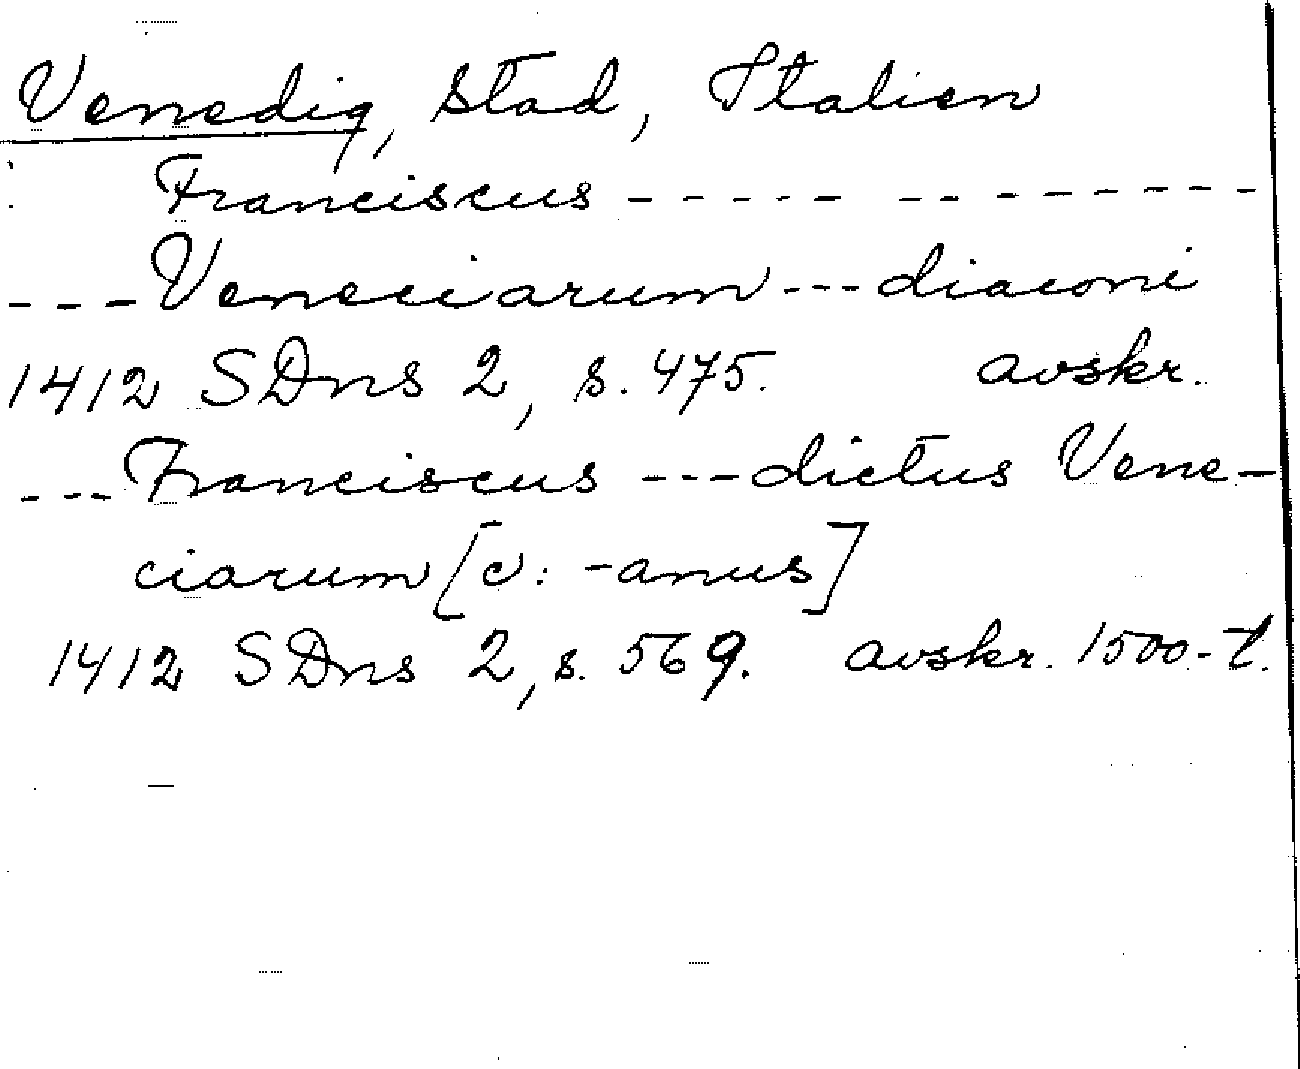 Venedig, stad, Italien
Franciscus - - - - - - - - - - - - -
- - - Veneciarum - - - diaconi
1412 SDns 2, s. 475. avskr.
- - - Franciscus - - - dictus Vene-
ciarum [c: -anus]
1412 SDns 2, s. 569. avskr. 1500-t.